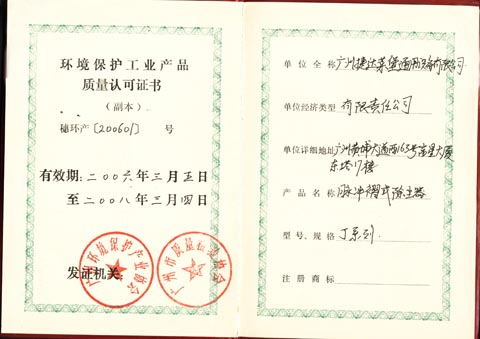 环境保护工业产品
质量认可证书
（副本）
穗环产〔200601〕 号
有效期：二〇〇六年三月五日
至二〇〇八年三月四日
发证机关：
广州环境保护产业协会
广州市质量
协会
单位全称 广州捷达莱堡通用设备有限公司
单位经济类型 有限责任公司
单位详细地址 广州黄埔大道西163号富星大厦
东塔17楼
产品名称 脉冲褶式除尘器
型号、规格 J系列
注册商标